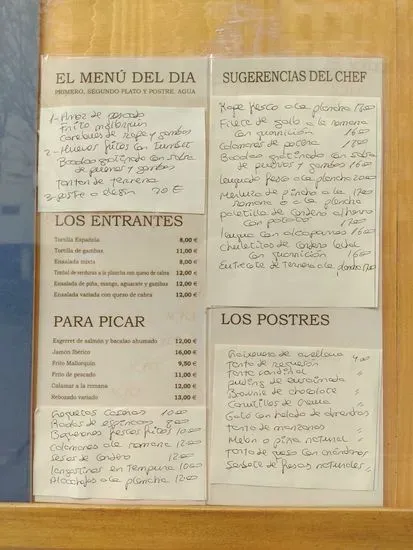 EL MENÚ DEL DIA
PRIMERO, SEGUNDO PLATO Y POSTRE, AGUA
1- Arroz de pescado
Frito mallorquin
Canelones de rape y gambas
2- Huevos fritos con tumbet
Bacalao gratinado con salsa
de puerros y gambas
de ternera
3- postre a elegir 20 €
LOS ENTRANTES
Tortilla Española 8,00 €
Tortilla de gambas 11,00 €
Ensalada mixta 8,00 €
Timbal de verduras a la plancha con queso de cabra 12,00 €
Ensalada de piña, mango, aguacate y gambas 12,00 €
Ensalada variada con queso de cabra 12,00 €
PARA PICAR
Esgerret de salmón y bacalao ahumado 12,00 €
Jamón Ibérico 16,00 €
Frito Mallorquin 9,50 €
Frito de pescado 11,00 €
Calamar a la romana 12,00 €
Rebozado variado 13,00 €
Croquetas caseras 10.00
de espinacas
Boquerones frescos fritos 10.00
Calamares a la romana 12.00
Sesos de cordero 12.00
Langostinos en tempura 10.00
Alcachofas a la plancha 12.00
SUGERENCIAS DEL CHEF
Rape fresco a la plancha
Filete de gallo a la romana
con guarnición 16.00
Calamares de potera
Bacalao gratinado con salsa
de puerros y gambas 16.00
Lenguado fresco a la plancha 20.00
Merluza de pincho a la
romana o a la plancha
paletilla de cordero al horno
con patatas
Lengua con alcaparras 16.00
chuletitas de cordero lechal
con guarnición 16.00
Entrecote de ternera a la plancha
LOS POSTRES
de avellana
Tarta de requesón
Tarta
puding de ensaimada
Brownie de chocolate
Canutillos de crema
Gató con helado de almendras
Tarta de manzana
Melon o piña natural
Tarta de queso con arándanos
Sorbete de fresas naturales